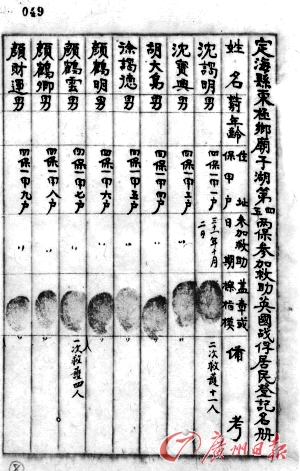 049
定海縣東極鄉廟子湖第四五兩保參加救助英國战俘居民登記名册
姓名 年齡 住址 保甲户 參加救助日期 盖章或 備考
沈 明 男 四保一甲一户 三十一年十月二日 二次救護十一人
沈寶興 男 四保一甲二户 〃
胡大 男 四保一甲四户 〃
徐 德 男 四保一甲五户 〃
顏鶴明 男 四保一甲六户 〃
顏鶴雲 男 四保一甲七户 〃 一次救護四人
顏鶴卿 男 四保一甲八户 〃
顏財運 男 四保一甲九户 〃
廣州日報